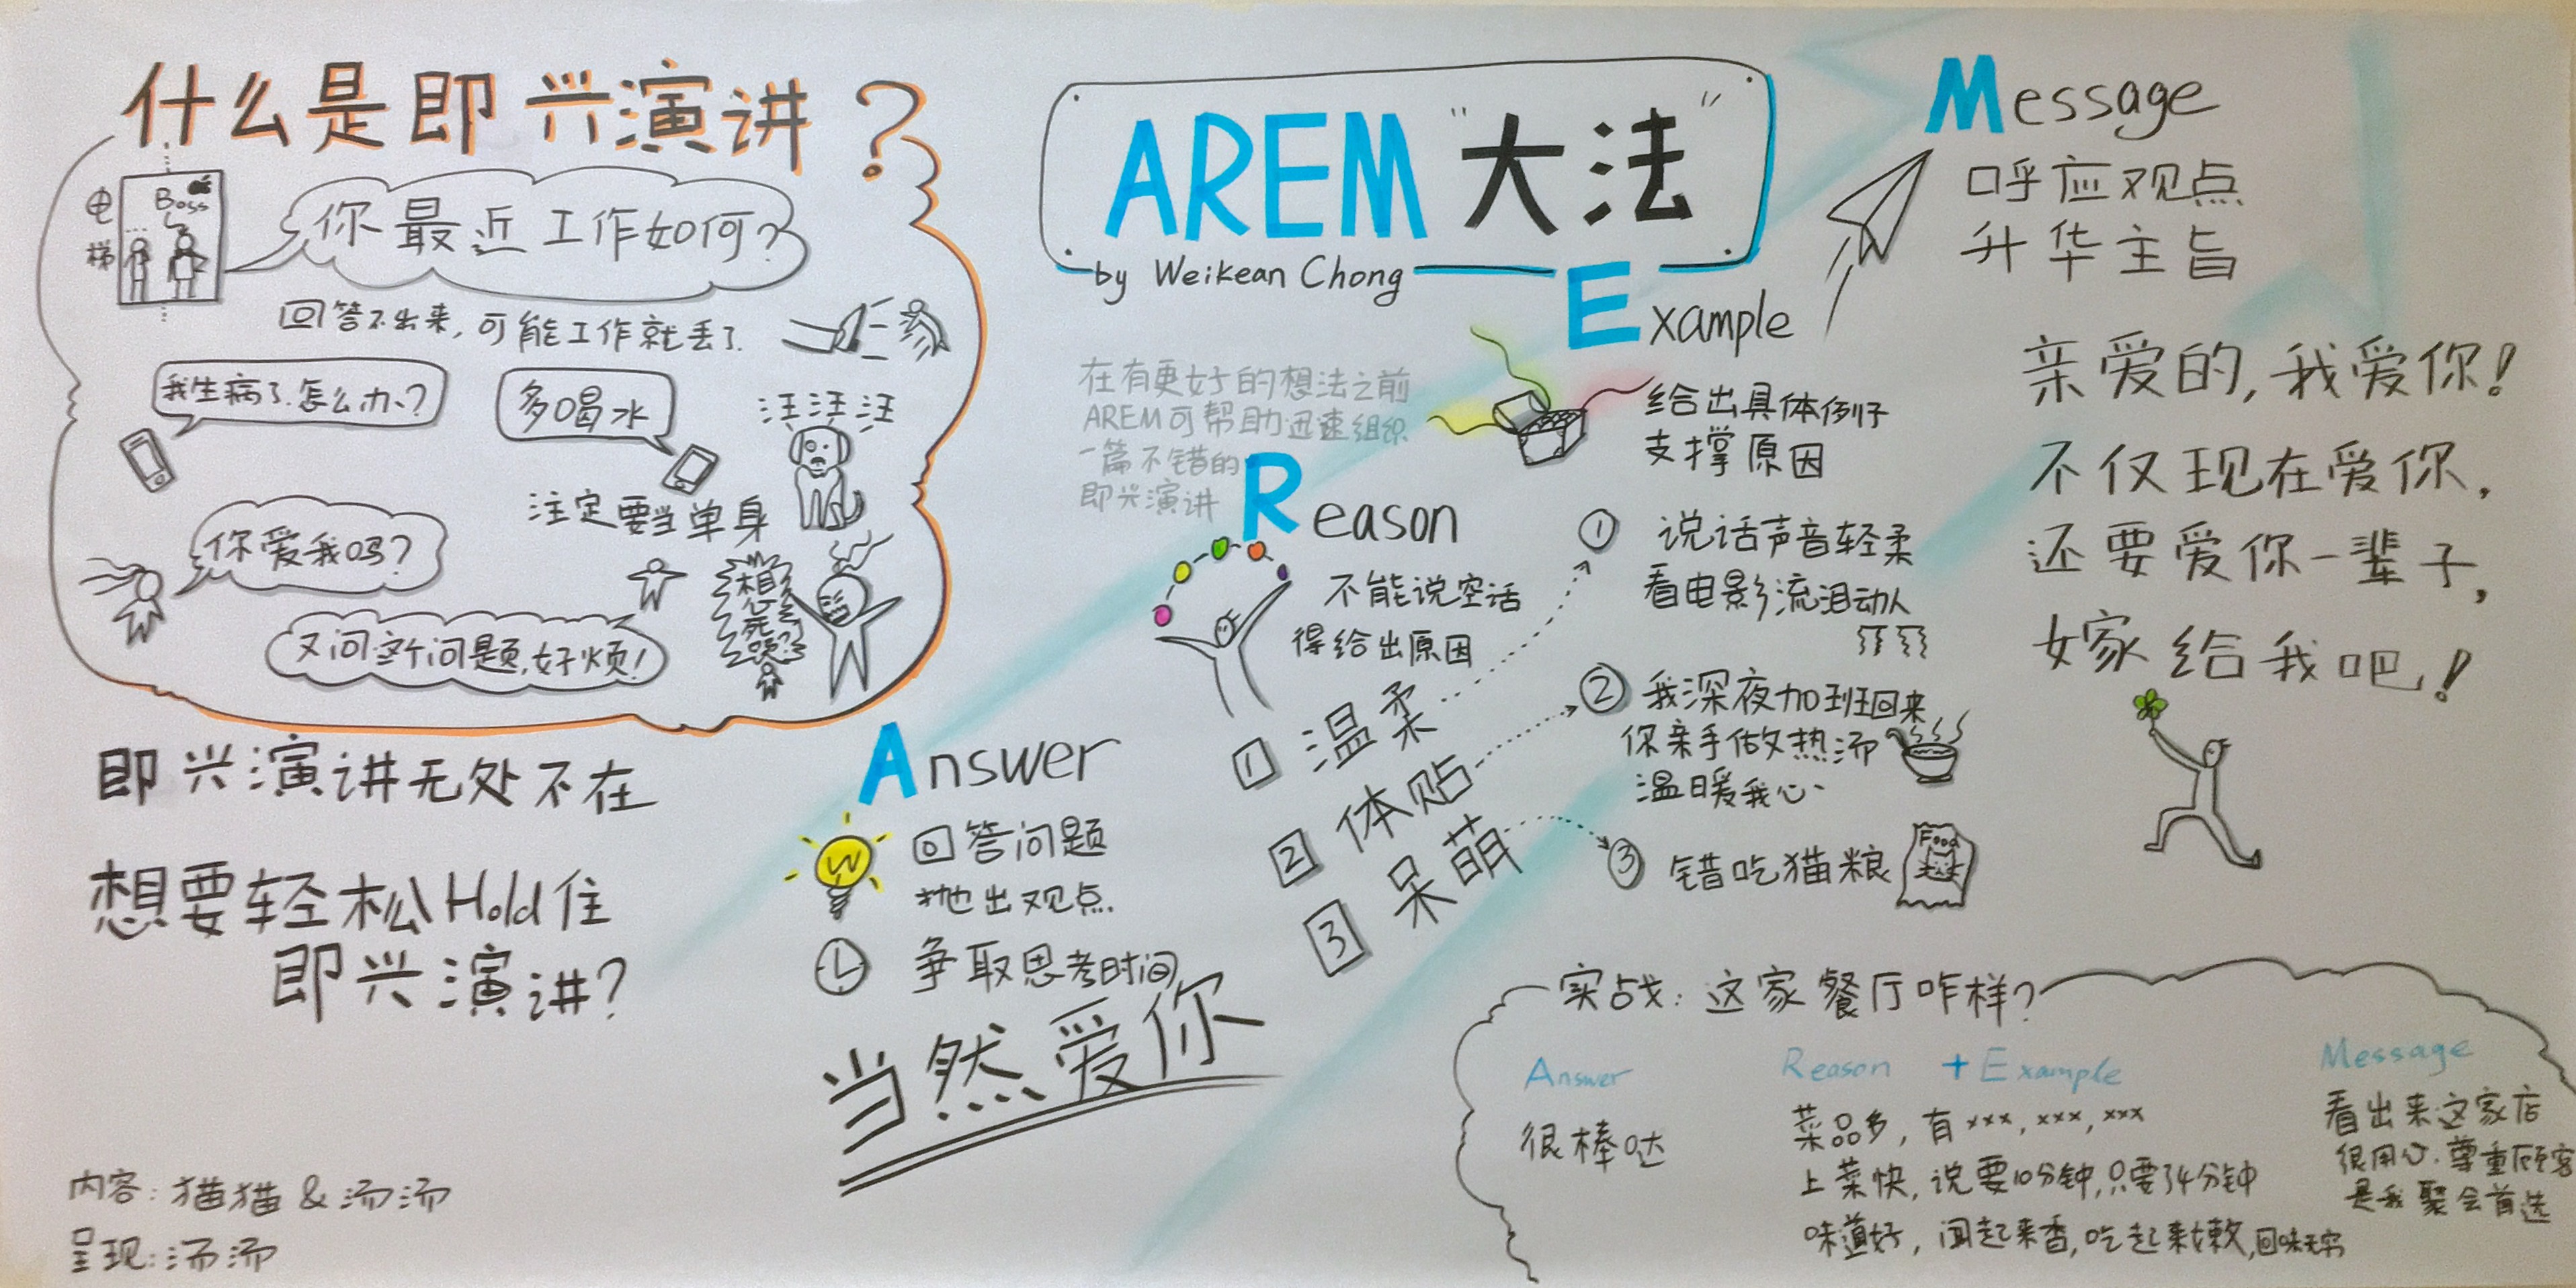 什么是即兴演讲?
电梯
Boss
你最近工作如何?
回答不出来,可能工作就丢了.
我生病了.怎么办?
多喝水
汪汪汪
注定要当单身
你爱我吗?
又问这个问题,好烦!
想怎么死
即兴演讲无处不在
想要轻松Hold住
即兴演讲?
内容:猫猫&汤汤
呈现:汤汤
AREM“大法”
by Weikean Chong
在有更好的想法之前
AREM可帮助迅速组织
一篇不错的
即兴演讲
Answer
回答问题
抛出观点.
争取思考时间
当然爱你
Reason
不能说空话
得给出原因
1 温柔
2 体贴
3 呆萌
Example
给出具体例子
支撑原因
① 说话声音轻柔
看电影流泪动人
② 我深夜加班回来
你亲手做热汤
温暖我心
③ 错吃猫粮
Food
Message
呼应观点
升华主旨
亲爱的,我爱你!
不仅现在爱你,
还要爱你一辈子,
嫁给我吧!
实战:这家餐厅咋样?
Answer
很棒哒
Reason + Example
菜品多,有×××,×××,×××
上菜快,说要10分钟,只要了4分钟
味道好,闻起来香,吃起来嫩,回味无穷
Message
看出来这家店
很用心.尊重顾客
是我聚会首选